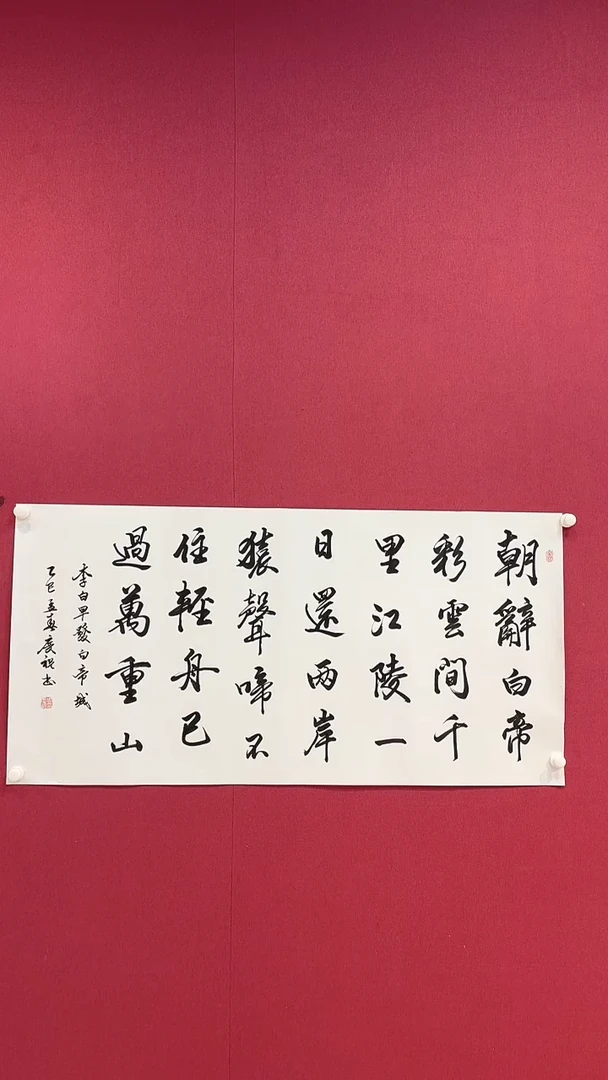 朝辭白帝
彩雲間千
里江陵一
日還兩岸
猿聲啼不
住輕舟已
過萬重山
李白早發白帝城
乙巳孟春慶祝書